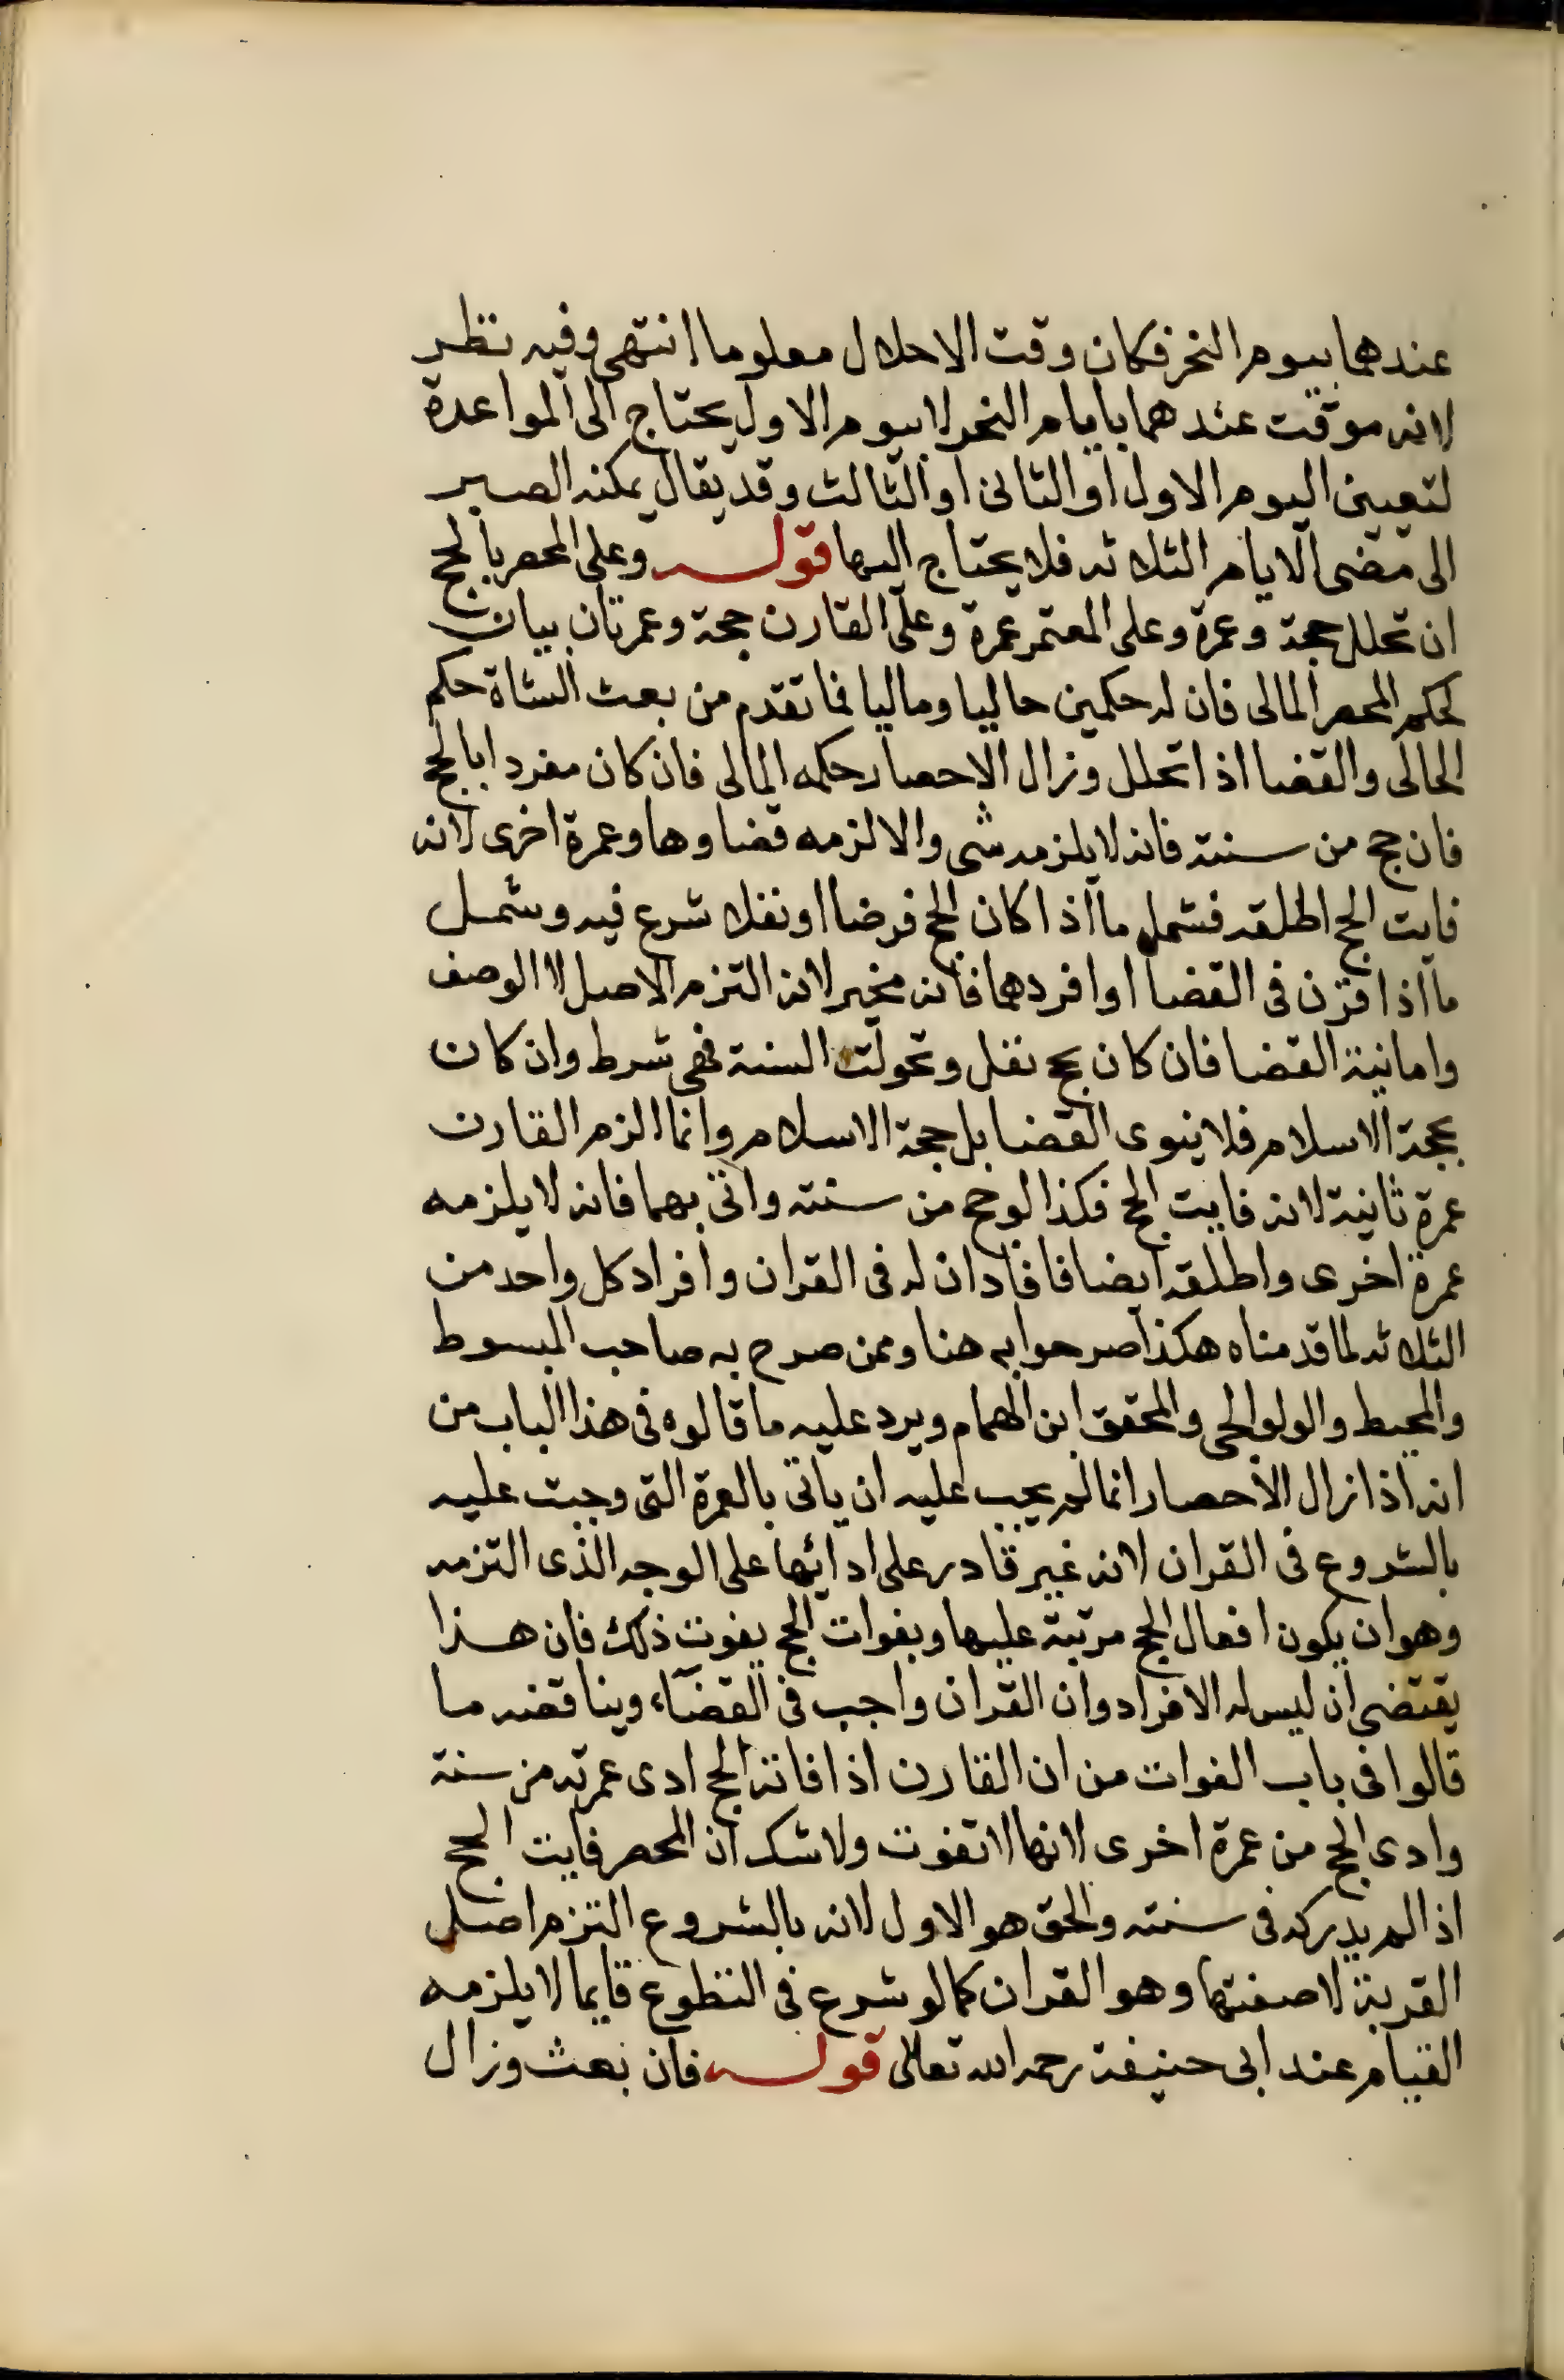 عندهما بيوم النحر فكان وقت الاحلال معلوما انتهى وفيه نظر
لانه موقت عندهما بايام النحر لا بيوم الاول يحتاج الى المواعدة
لتعيين اليوم الاول او الثانى او الثالث وقد يقال يمكنه الصبر
الى مضى الايام الثلاثه فلا يحتاج اليها قوله وعلى المحصر بالحج
ان تحلل حجة وعمرة وعلى المعتمر عمرة وعلى القارن حجة وعمرتان بيان
لحكم المحصر المالى فان له حكمين حاليا وماليا فما تقدم من بعث الشاة حكم
الحالى والقضا اذا تحلل وزال الاحصار حكمه المالى فان كان مفردا بالحج
فان حج من سنته فانه لا يلزمه شى والا لزمه قضاوها وعمرة اخرى لانه
فايت الحج اطلقه فشمل ما اذا كان الحج فرضا او نفلا شرع فيه وشمل
ما اذا قرن فى القضا او افردهما فانه مخير لانه التزم الاصل لا الوصف
واما نية القضا فان كان بحج نفل وتحولت السنة فهى شرط وان كان
بحجة الاسلام فلا ينوى القضا بل حجة الاسلام وانما الزم القارن
عمرة ثانية لانه فايت الحج فكذا لو حج من سنته واتى بهما فانه لا يلزمه
عمرة اخرى واطلقه ايضا فافاد ان له فى القران وافراد كل واحد من
الثلاثه لما قدمناه هكذا صرحوا به هنا وممن صرح به صاحب المبسوط
والمحيط والولوالجى والمحقق ابن الهمام ويرد عليه ما قالوه فى هذا الباب من
انه اذا زال الاحصار انما لم يجب عليه ان ياتى بالعمرة التى وجبت عليه
بالشروع فى القران لانه غير قادر على ادائها على الوجه الذى التزمه
وهو ان يكون افعال الحج مرتبة عليها وبفوات الحج يفوت ذلك فان هذا
يقتضى ان ليس له الافراد وان القران واجب فى القضاء وينا قضه ما
قالوا فى باب الفوات من ان القارن اذا فاته الحج ادى عمرته من سنة
وادى الحج من عمرة اخرى لانها لا تفوت ولا شك ان المحصر فايت الحج
اذا لم يدركه فى سنته والحق هو الاول لانه بالشروع التزم اصل
القربة لا صفتها وهو القران كما لو شرع فى التطوع قايما لا يلزمه
القيام عند ابى حنيفة رحمه الله تعالى قوله فان بعث وزال